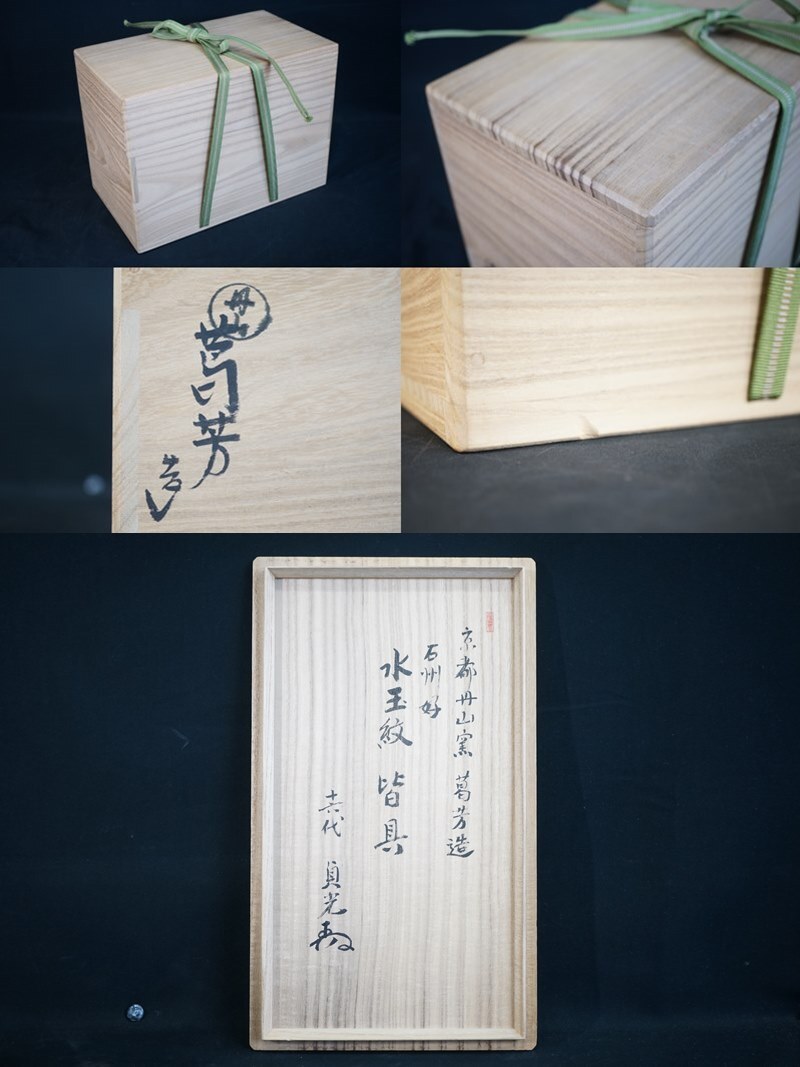 丹山
葛芳
造
京都丹山窯 葛芳造
石州好
水玉紋 皆具
十六代 貞光